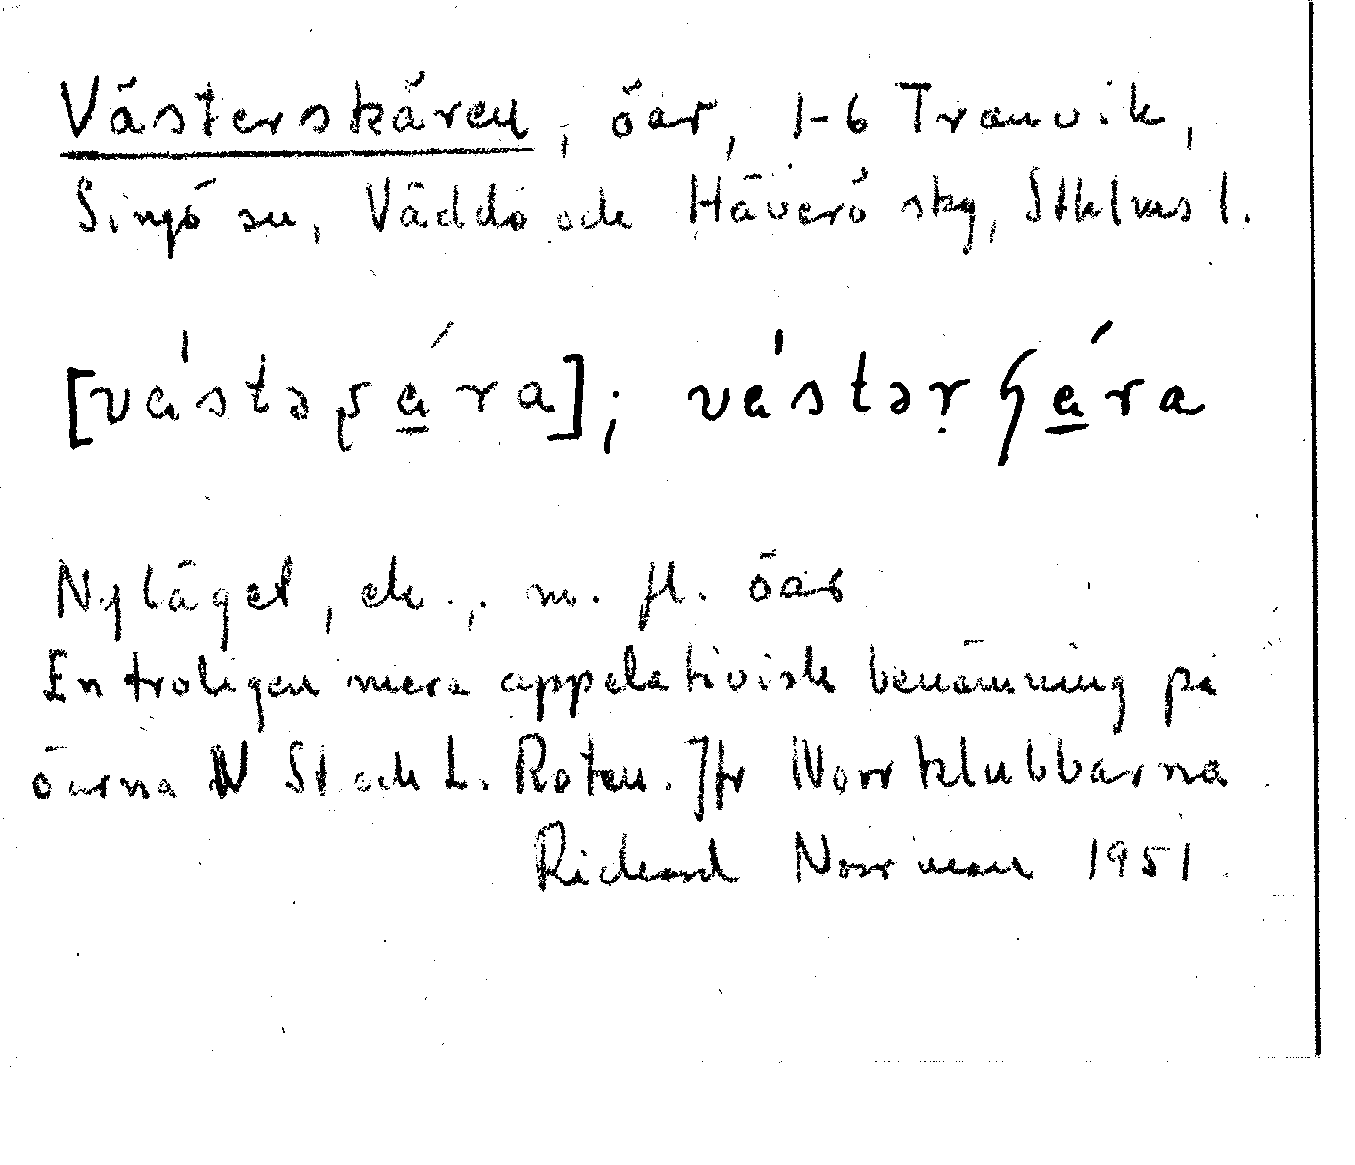 Västerskären, öar, 1-6 Tranvik,
Singö sn, Väddö och Häverö skg, Sthlms l.
Nyläget, ek., m. fl. öar
En troligen mera appelativisk benämning på
öarna N St och L. Roten. Jfr Norrklubbarna
Richard Norrman 1951